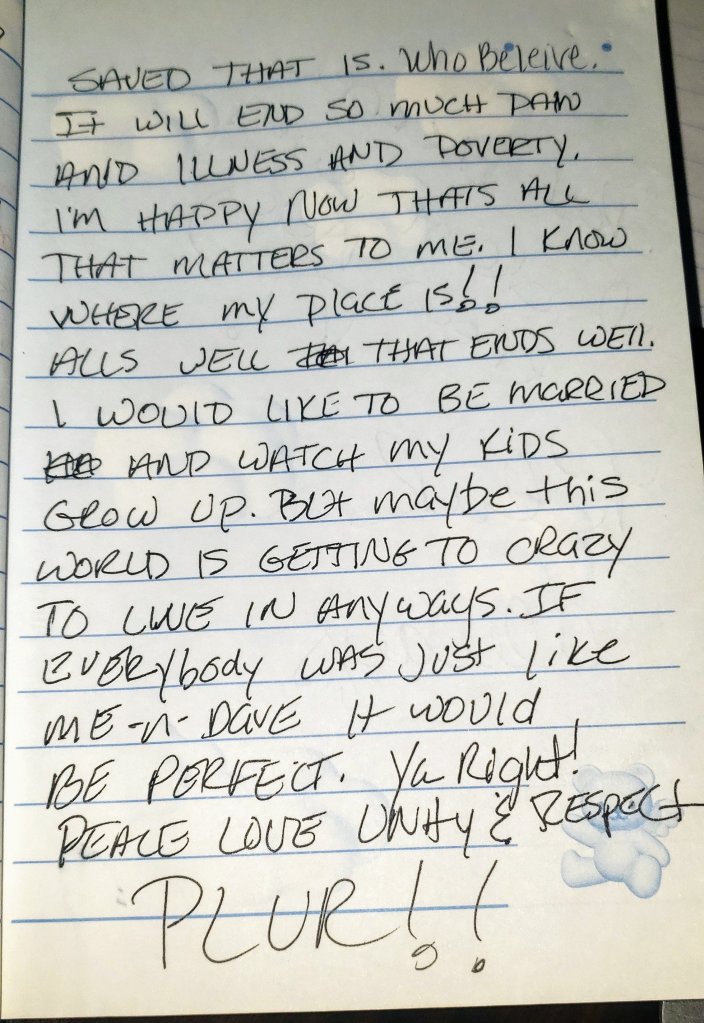 SAVED THAT IS. Who Beleive.
It WILL END SO MUCH PAIN
AND ILLNESS AND POVERTY.
I'M HAPPY NOW THATS ALL
THAT MATTERS TO ME. I KNOW
WHERE MY PLACE IS!!
ALLS WELL THAT ENDS WELL.
I WOULD LIKE TO BE MARRIED
AND WATCH MY KIDS
GROW UP. BUt maybe this
WORLD IS GETTING TO CRAZY
TO LIVE IN ANYWAYS. IF
EVERYbody WAS JUSt like
ME-N-DAVE It WOULD
BE PERFECT. Ya Right!
PEACE LOVE UNity & RESPECt
PLUR!!